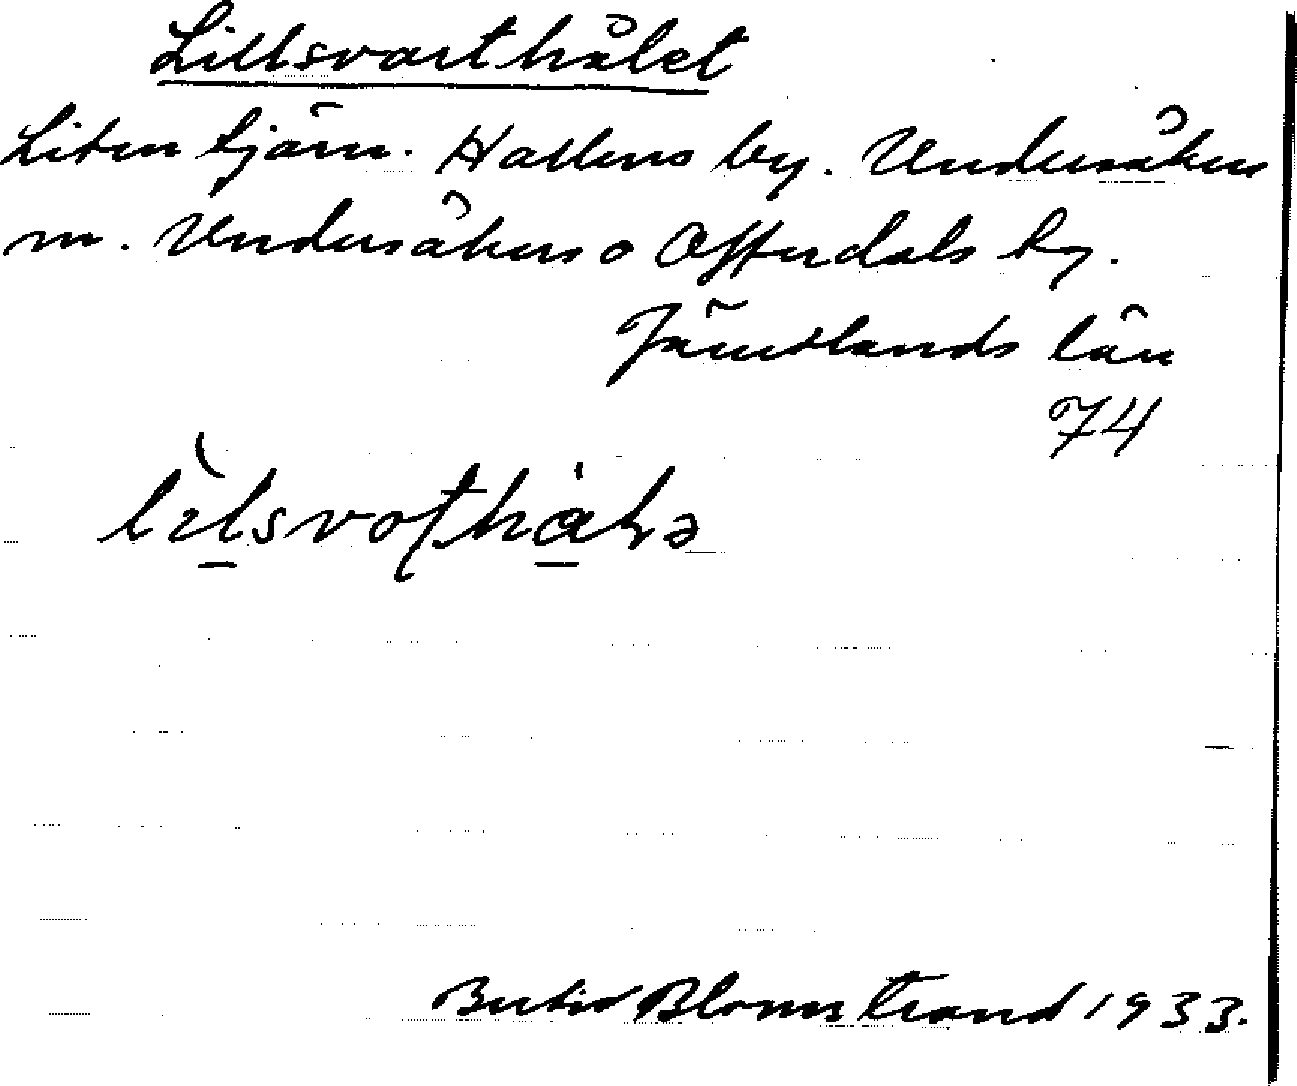 Lillsvarthålet
Liten tjärn. Hallens by. Undersåkers
m. Undersåkers o Offerdals tg.
Jämtlands län
74
Bertil Blomstrand 1933.